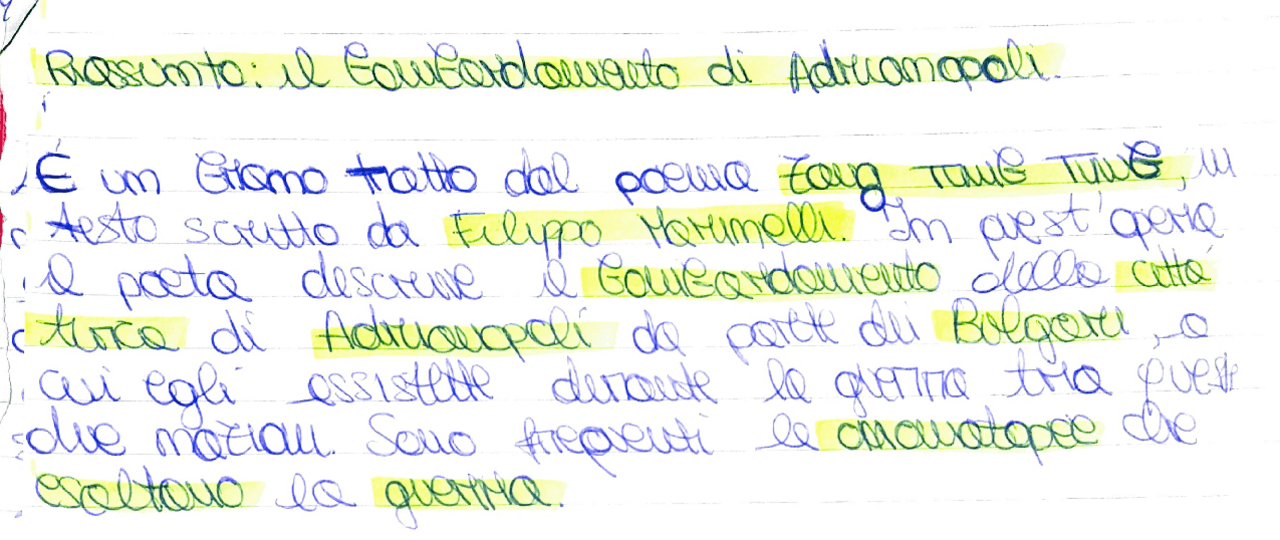 Riassunto: il bombardamento di Adrianopoli.
É un brano tratto dal poema Zang Tumb Tumb, un
testo scritto da Filippo Marinelli. In quest'opera
il poeta descrive il bombardamento della città
turca di Adrianopoli da parte dei Bulgari, a
cui egli assistette durante la guerra tra queste
due nazioni. Sono frequenti le onomatopee che
esaltano la guerra.